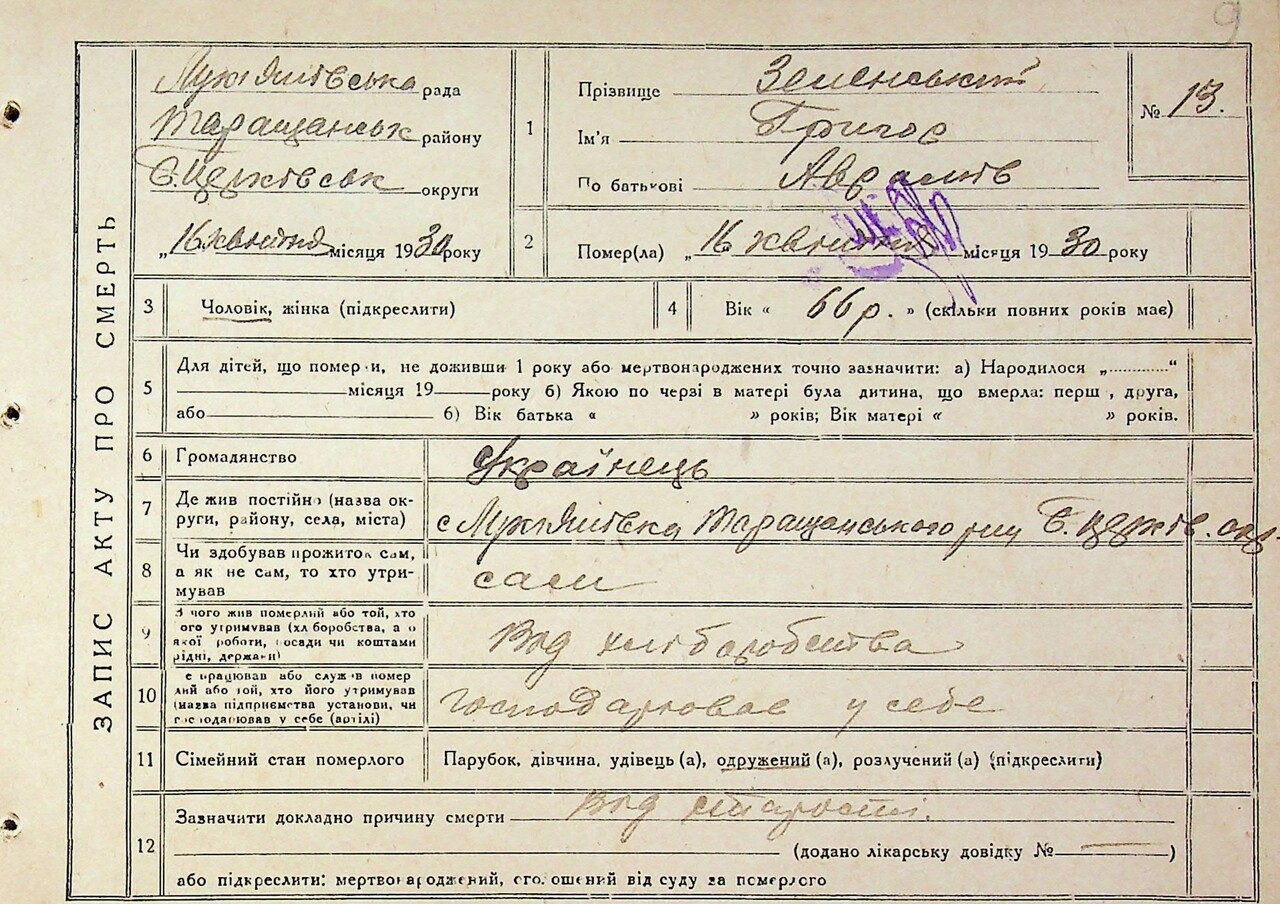 9
ЗАПИС АКТУ ПРО СМЕРТЬ
Лукіянівська рада
Таращанськ району
Б. Церківськ округи
„16 квітня місяця 1930 року
1
Прізвище Зеленський
Ім'я Григор
По батькові Аврамів
№ 13.
2
Помер(ла) „16 квітня місяця 1930 року
3 Чоловік, жінка (підкреслити)
4 Вік « 66 р. » (скільки повних років має)
5 Для дітей, що померли, не доживши 1 року або мертвонароджених точно зазначити: а) Народилося „............“
місяця 19 року б) Якою по черзі в матері була дитина, що вмерла: перш , друга,
або б) Вік батька « » років; Вік матері « » років.
6 Громадянство Українець
7 Де жив постійно (назва ок-
руги, району, села, міста)
с Лукіянівка Таращанського р-ну Б. Церків. окр.
8 Чи здобував прожиток сам,
а як не сам, то хто утри-
мував
сам
9 З чого жив померлий або той, хто
його утримував (хліборобства, а о
якої роботи, посади чи коштами
рідні, держави)
Від хліборобства
10 е працював або служив помер
лий або той, хто його утримував
(назва підприємства установи, чи
господарював у себе (артілі)
господарював у себе
11 Сімейний стан померлого Парубок, дівчина, удівець (а), одружений (а), розлучений (а) (підкреслити)
12 Зазначити докладно причину смерти Від старости.
(додано лікарську довідку № — )
або підкреслити: мертвонароджений, оголошений від суду за померлого